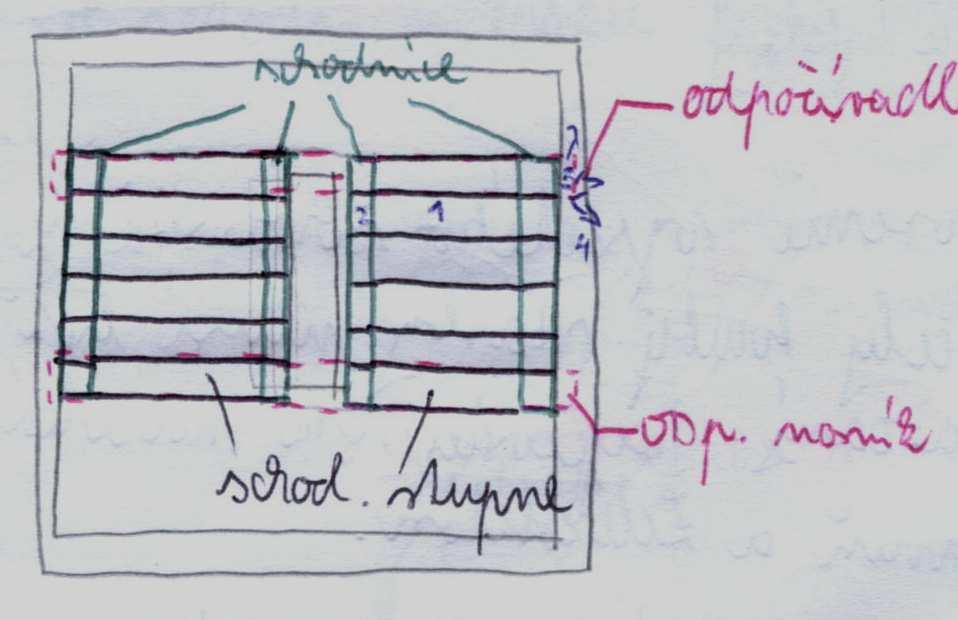 schodnice
odpočívadl
2 1
4
odp. nosník
schod. stupně